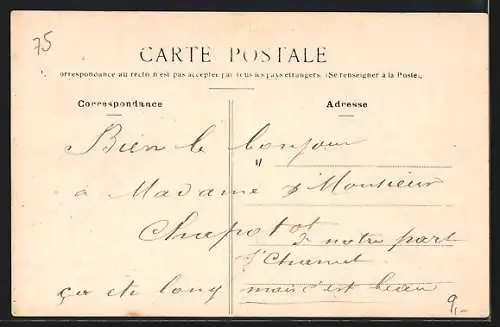 75
CARTE POSTALE
orrespondance au recto n'est pas acceptée par tous les pays étrangers. (Se renseigner à la Poste).
Correspondance
Adresse
Bien le bonjour
à Madame & Monsieur
Chapotot
de notre part
ça est long
mais c'est beau
9,-